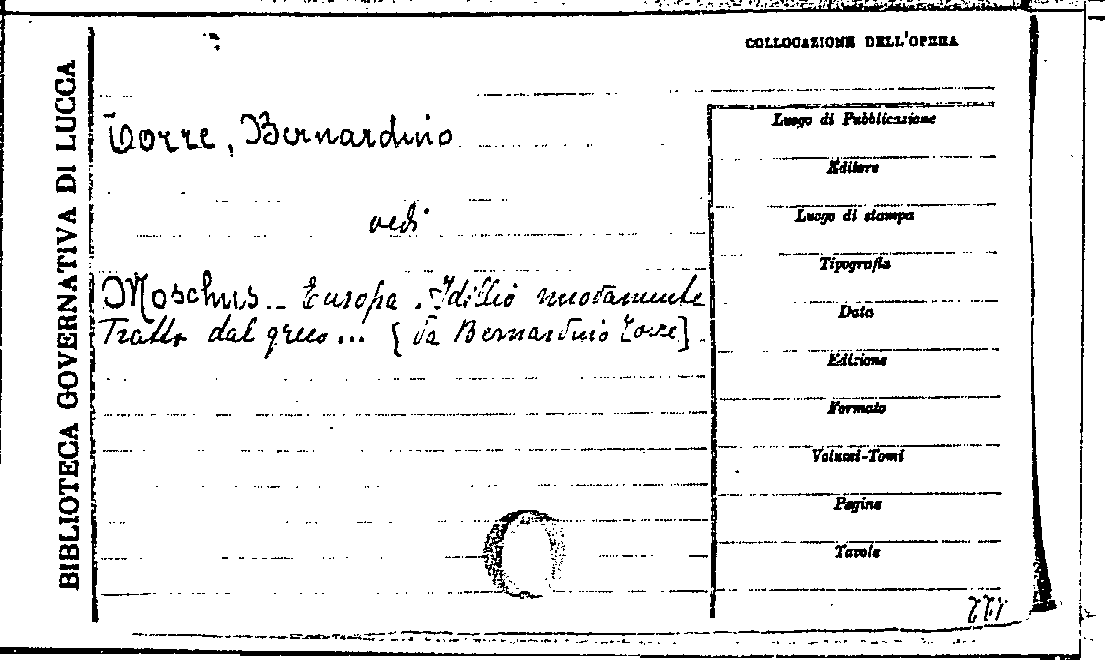 COLLOCAZIONE DELL'OPERA
BIBLIOTECA GOVERNATIVA DI LUCCA
Torre, Bernardino
vedi
Moschus - Europa. Idillio nuovamente
Tratto dal greco... [da Bernardino Torre].
Luogo di Pubblicazione
Editore
Luogo di stampa
Tipografia
Data
Edizione
Formato
Volumi-Tomi
Pagine
Tavole